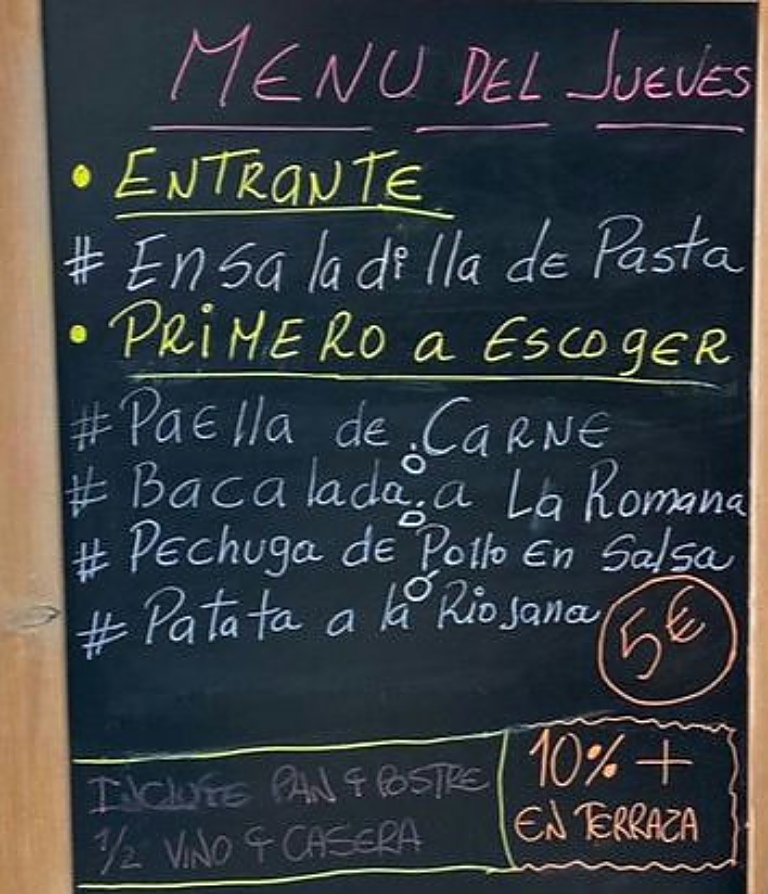 MENU DEL JUEVES
• ENTRANTE
# Ensaladilla de Pasta
• PRIMERO a ESCOGER
# Paella de CARNE
o
# Bacalada a La Romana
o
# Pechuga de Pollo En Salsa
o
# Patata a la Riojana
5€
INCLUYE PAN Y POSTRE
1/2 VINO Y CASERA
10% +
EN TERRAZA